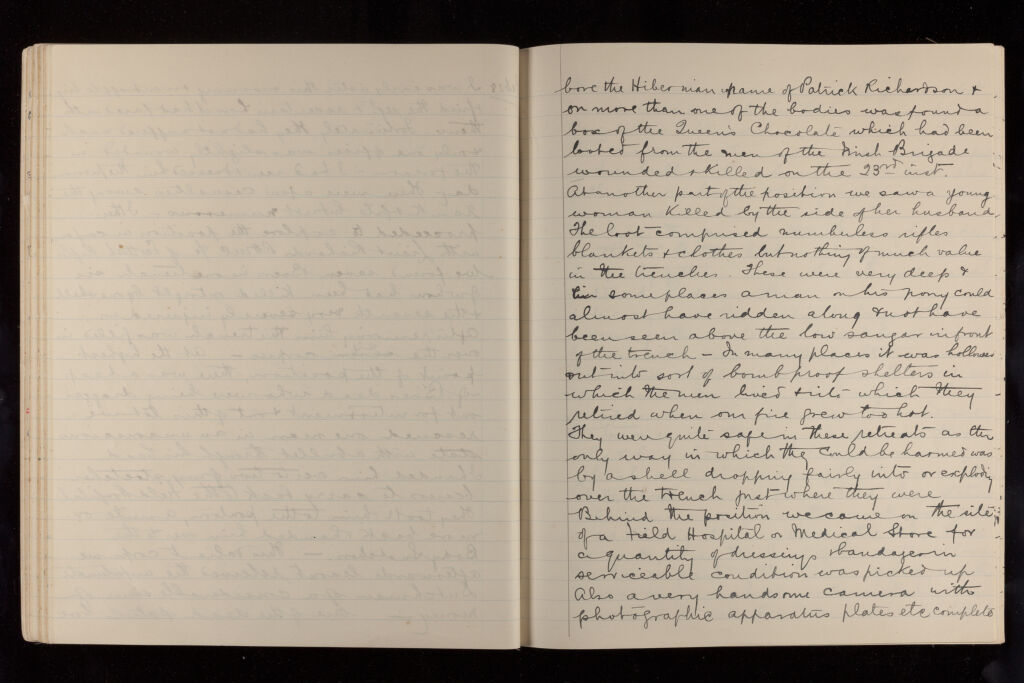 bore the Hibernian name of Patrick Richardson &
on more than one of the bodies was found a
box of the Queen's Chocolate which had been
looted from the men of the Irish Brigade
wounded & killed on the 23rd inst.
At another part of the position we saw a young
woman killed by the side of her husband.
The loot comprised numberless rifles
blankets & clothes but nothing of much value
in the trenches. These were very deep &
in some places a man on his pony could
almost have ridden along & not have
been seen above the low sangar in front
of the trench – In many places it was hollowed
out into sort of bomb proof shelters in
which the men lived & into which they
retired when our fire grew too hot.
They were quite safe in these retreats as the
only way in which the could be harmed was
by a shell dropping fairly into or exploding
over the trench just where they were
Behind the position we came on the site
of a Field Hospital or Medical Store for
a quantity of dressings bandages in
serviceable condition was picked up
Also a very handsome camera with
photographic apparatus plates etc complete